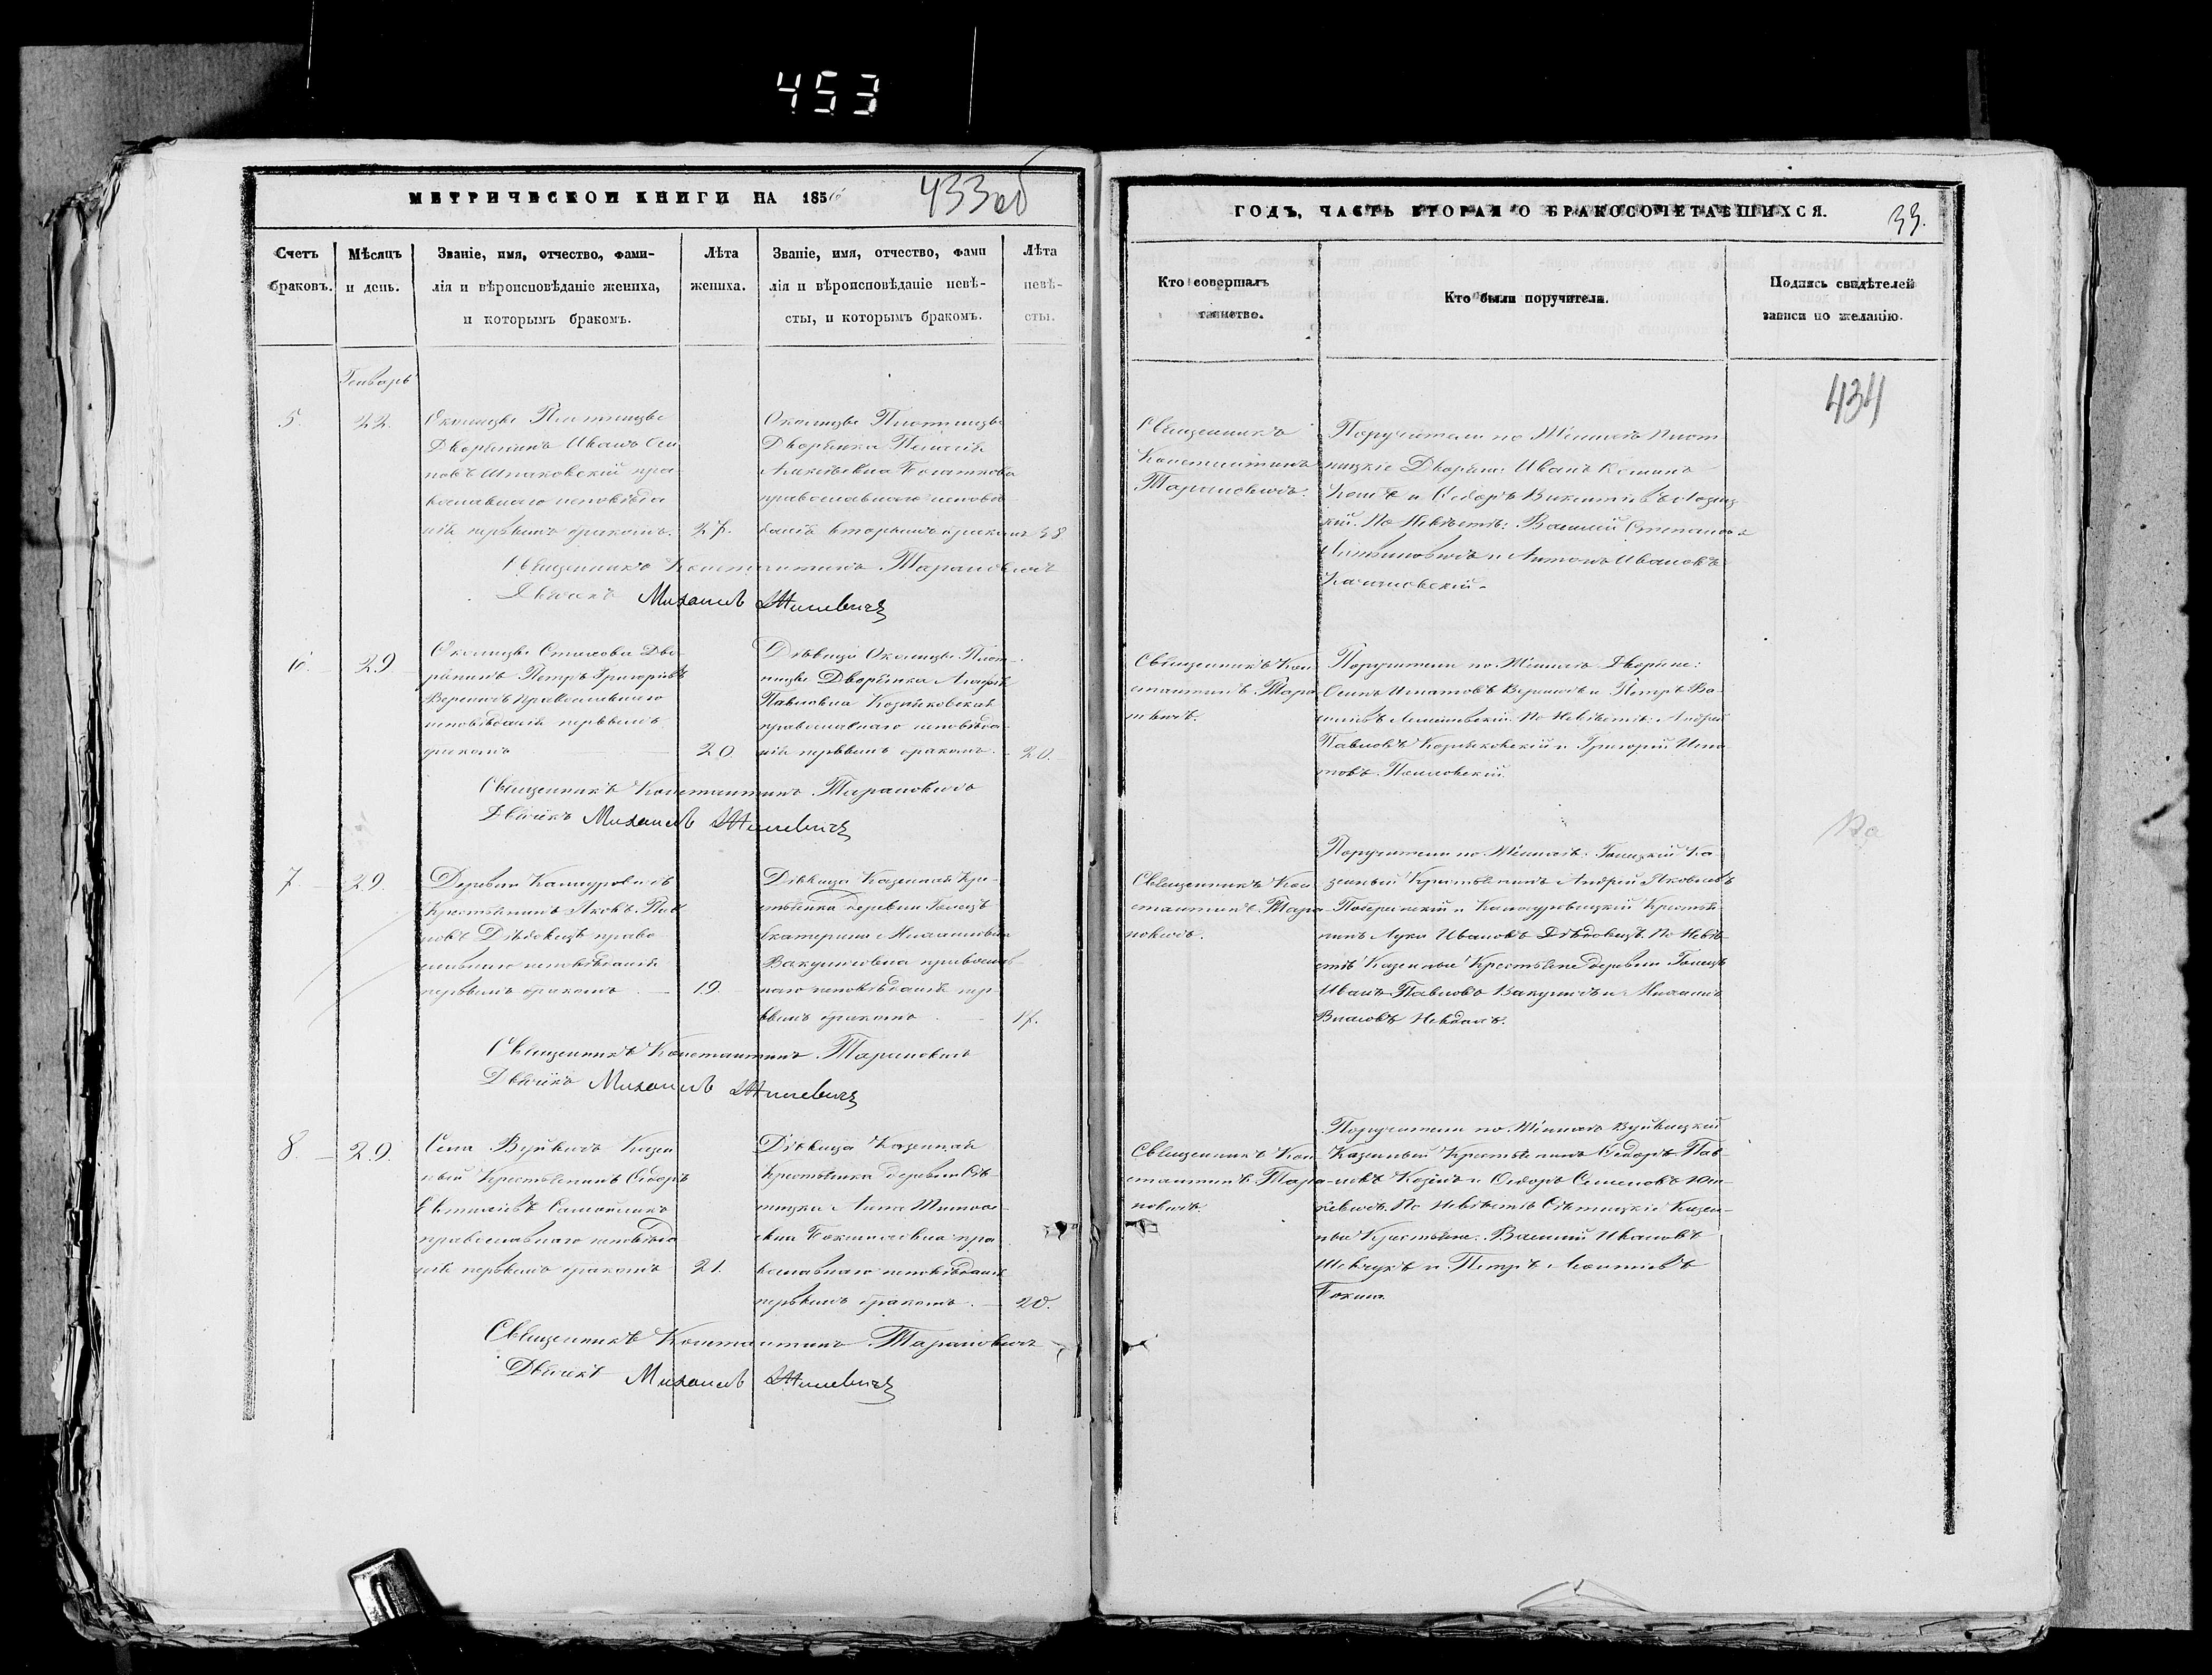 453
МЕТРИЧЕСКОЙ КНИГИ НА 1856
433об
Счетъ браковъ.
Мѣсяцъ и день.
Званіе, имя, отчество, фами-
лія и вѣроисповѣданіе жениха,
и которымъ бракомъ.
Лѣта
жениха.
Званіе, имя, отчество, фами
лія и вѣроисповѣданіе невѣ-
сты, и которымъ бракомъ.
Лѣта
невѣ-
сты.
Генварь
5.
22.
Околицы Плотницы
Дворянинъ Иванъ Оси
повъ Шпаковскій пра-
вославнаго исповѣда
нія первымъ бракомъ.
27.
Околицы Плотницы
Дворянка Пелагія
православнаго исповѣ-
данія вторымъ бракомъ
38
Священникъ Константинъ Тарановичъ
Дьячекъ Михаилъ Жилевичъ
6.
29
Околицы Стахова Дво-
рянинъ Петръ Григоріевъ
Вереничъ православнаго
исповѣданія первымъ
бракомъ
20.
Дѣвица Околицы Плот-
ницы Дворянка Агафія
Павловна Козляковская
православнаго исповѣда-
нія первымъ бракомъ.
20.
Священникъ Константинъ Тарановичъ
Дьячекъ Михаилъ Жилевичъ
7.
29.
Деревни
Крестьянинъ Яковъ Пав
ловъ Дѣдовецъ право
славнаго исповѣданія
первымъ бракомъ
19.
Дѣвица Казенная Кре-
стьянка деревни Голецъ
Екатерина Михайловна
Вакуличовна православ-
наго исповѣданія пер-
вымъ бракомъ
17.
Священникъ Константинъ Тарановичъ
Дьячекъ Михаилъ Жилевичъ
8.
29.
Села Вуйвичъ Казен
ный Крестьянинъ Сидоръ
Самойликъ
православнаго исповѣда
нія первымъ бракомъ
21.
Дѣвица Казенная
Крестьянка деревни Сѣ-
тницка Анна Тимоѳе-
евна пра
вославнаго исповѣданія
первымъ бракомъ.
20.
Священникъ Константинъ Тарановичъ
Дьячекъ Михаилъ Жилевичъ
ГОДЪ, ЧАСТЬ ВТОРАЯ О БРАКОСОЧЕТАВШИХСЯ.
33.
Кто совершалъ
таинство.
Кто были поручители.
Подпись свидѣтелей
записи по желанію.
434
Священникъ
Константинъ
Тарановичъ.
Поручители по Женихѣ Плот
ницкіе Дворяне: Иванъ
и Ѳедоръ Викентіевъ
По Невѣстѣ: Василій Степановъ
и Антонъ Ивановъ
Качановскій.
Священникъ Кон
стантинъ Тара
новичъ.
Поручители по Женихѣ Дворяне:
Осипъ Игнатовъ Вереничъ и Петръ Ва-
По Невѣстѣ: Андрей
Павловъ Козляковскій и Григорій Игна
товъ
Священникъ Кон
стантинъ Тара-
новичъ.
Поручители по Женихѣ: Голецкій Ка
зенный Крестьянинъ Андрей Яковлевъ
и Крестья-
нинъ Лука Ивановъ Дѣдовецъ. По Невѣ-
стѣ Казенные Крестьяне деревни Голецъ
Иванъ Павловъ Вакуличъ и Михаилъ
Власовъ
Священникъ Кон
стантинъ Тара-
новичъ.
Поручители по Женихѣ Вуйвицкій
Казенный Крестьянинъ Ѳедоръ Пав-
ловъ и Сидоръ Семеновъ
По Невѣстѣ Сѣтницкіе Казен-
ные Крестьяне: Василій Ивановъ
Шевчукъ и Петръ Леонтіевъ